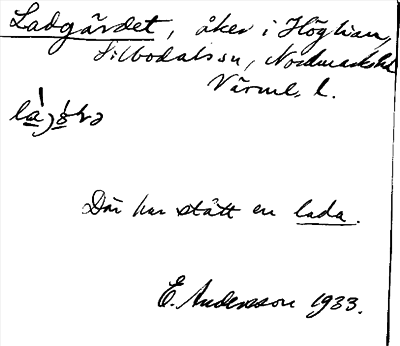 Ladgärdet, åker i Höglian,
Silbodalssn, Nordmarkshd
Värml. l.
Där har stått en lada.
E. Andersson 1933.